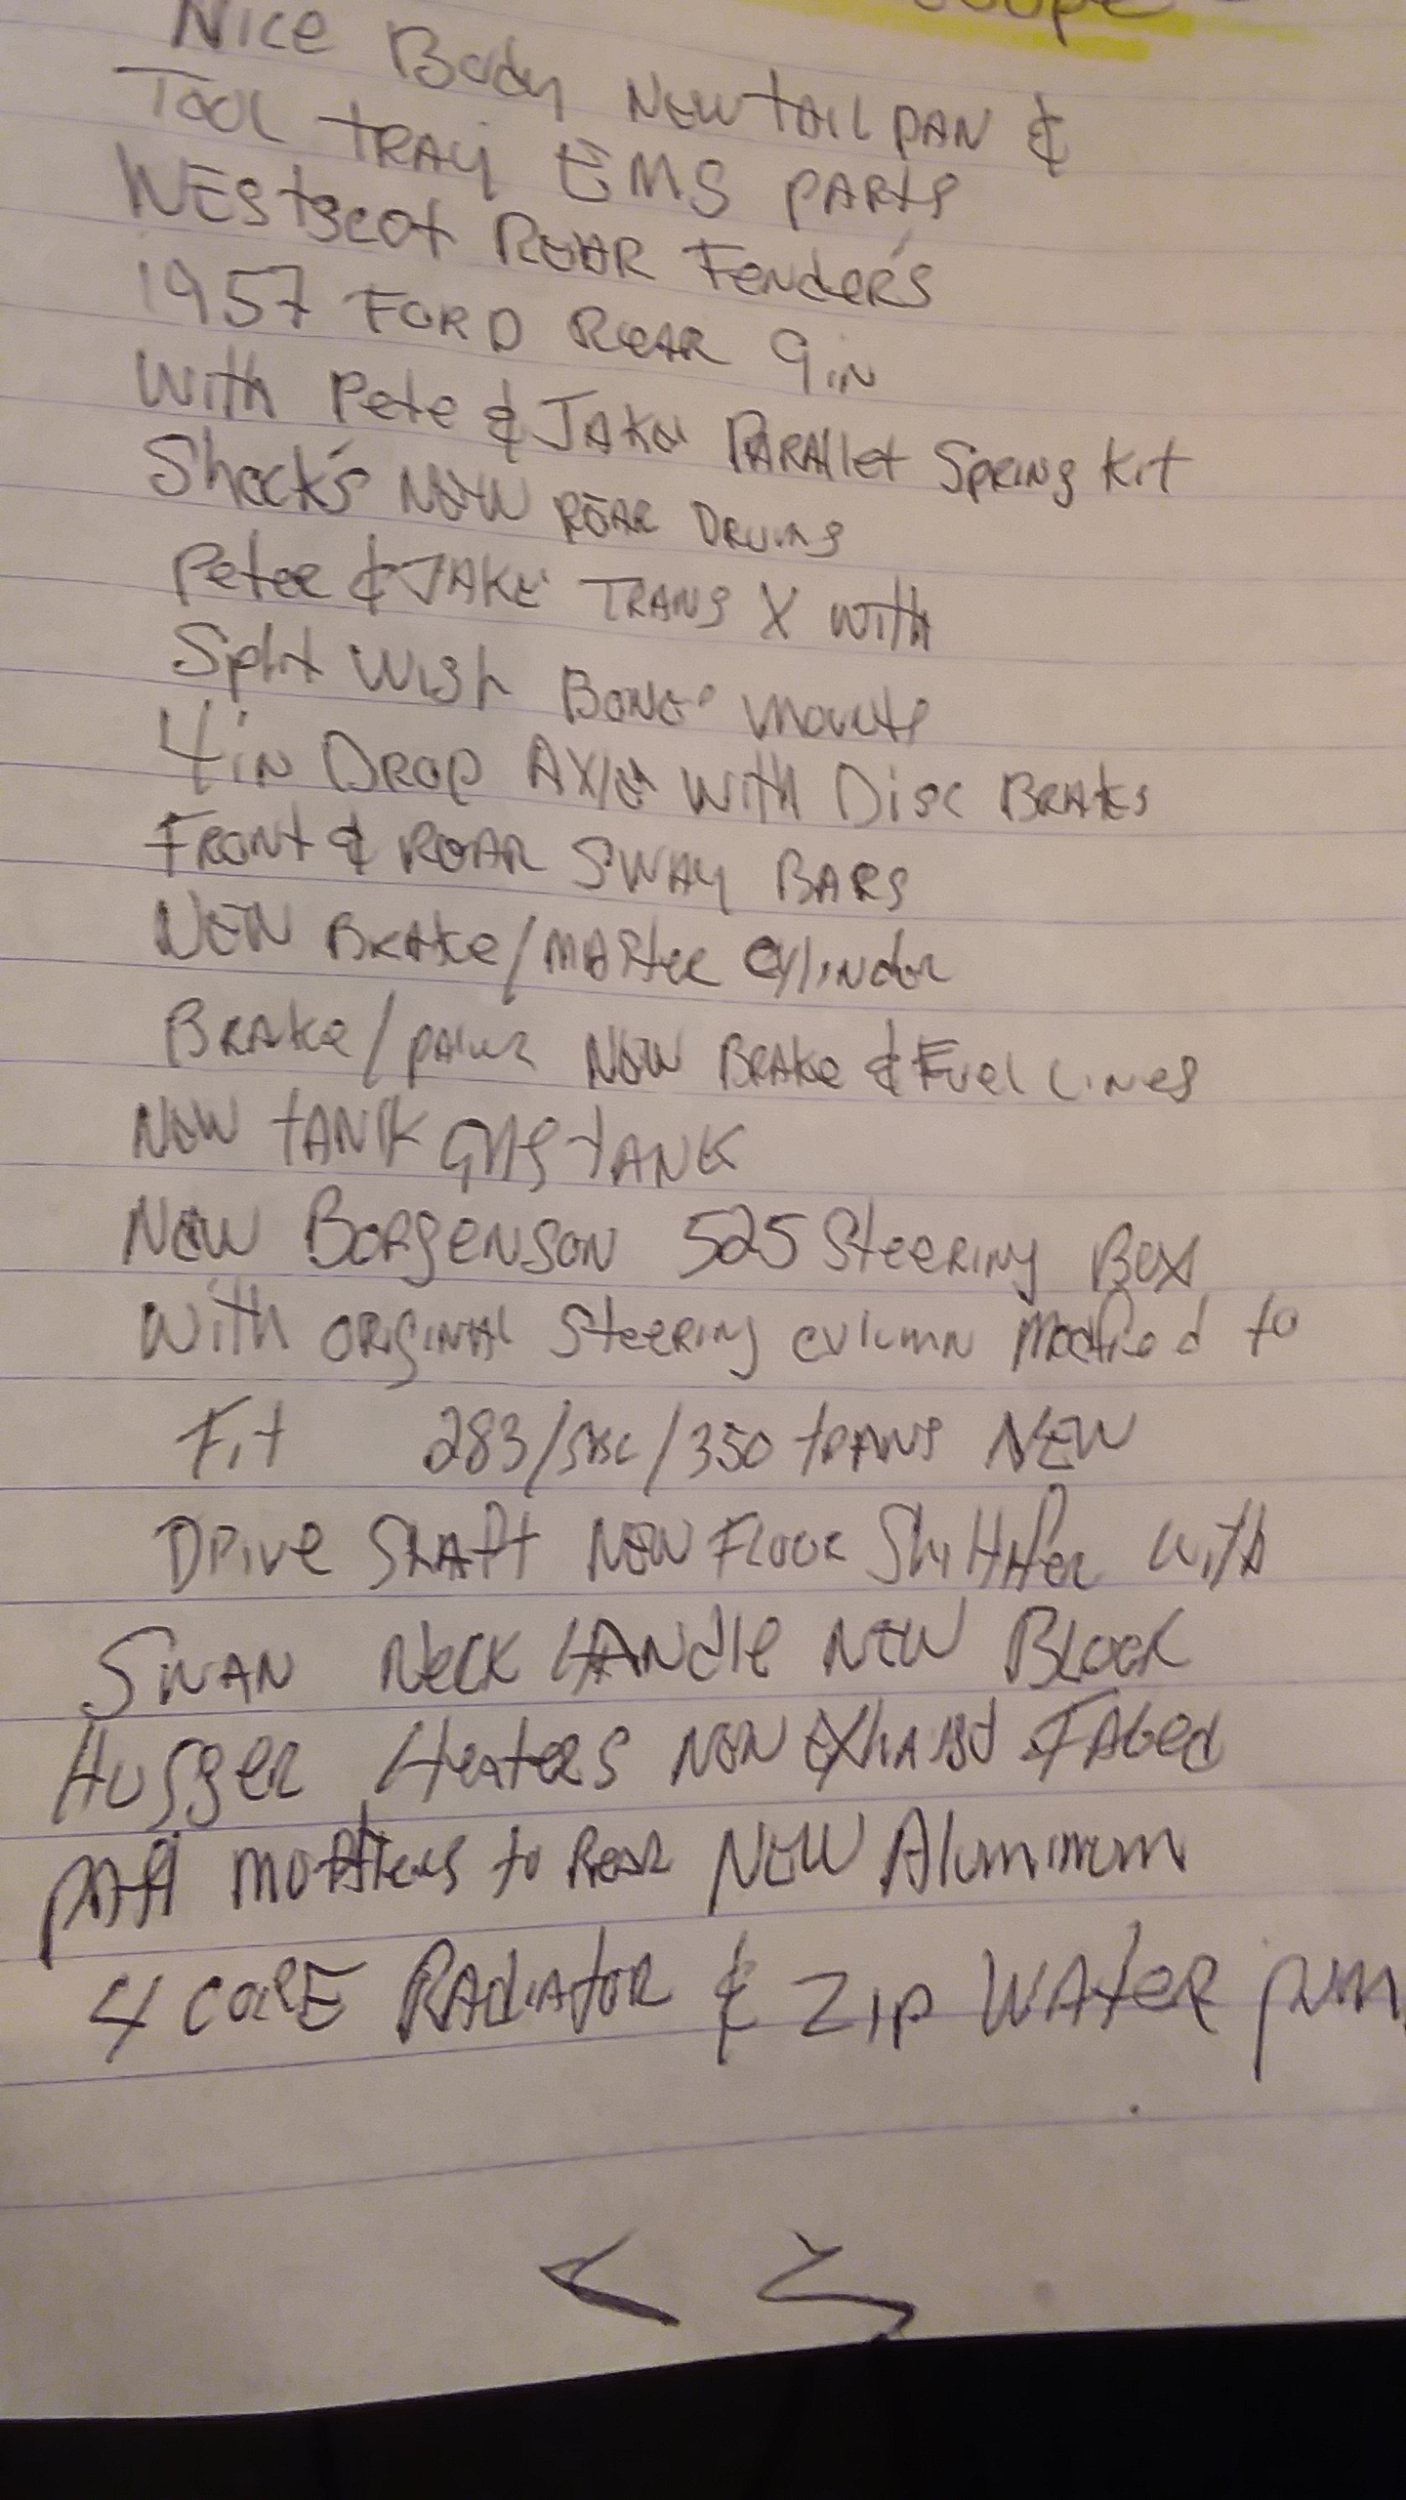 Nice Body New tail pan &
Tool tray EMS parts
Westscot Rear Fender's
1957 Ford Rear 9in
With Pete & Jake Parallet Spring Kit
Shock's New Rear Drums
Petee & Jake Trans X with
Split Wish Bone mounts
4in Drop Axle with Disc Brakes
Front & Rear Sway Bars
New Brake/master cylinder
Brake/ New Brake & Fuel Lines
New tank Gas tank
New Borgenson 525 Steering Box
With original steering column modified to
Fit 283/SBC/350 trans New
Drive Shaft New Floor Shiftter with
Swan Neck Handle New Block
Hugger Heaters New exhaust
to Rear New Aluminum
4 core Radiator & Zip Water pum